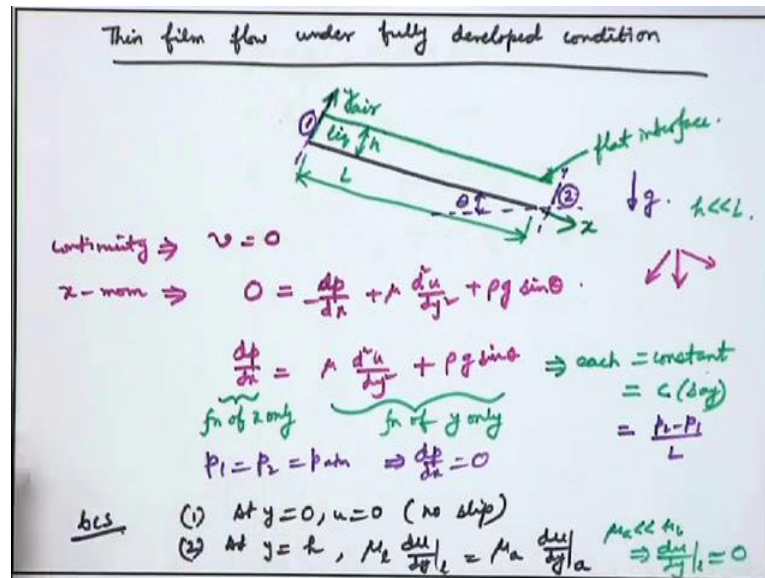 Thin film flow under fully developed condition
y air
① liq h
flat interface.
L
θ ② ↓g. h<<L.
x
continuity ⇒ v = 0
x-mom ⇒ 0 = -dp/dx + μ d²u/dy² + ρg sinθ.
dp/dx = μ d²u/dy² + ρg sinθ ⇒ each = constant
= c (say)
fn of x only fn of y only
= (p₂-p₁)/L
p₁ = p₂ = patm ⇒ dp/dx = 0
bcs (1) At y=0, u=0 (no slip)
(2) At y=h, μₗ du/dy|ₗ = μₐ du/dy|ₐ
μₐ << μₗ
⇒ du/dy|ₗ = 0